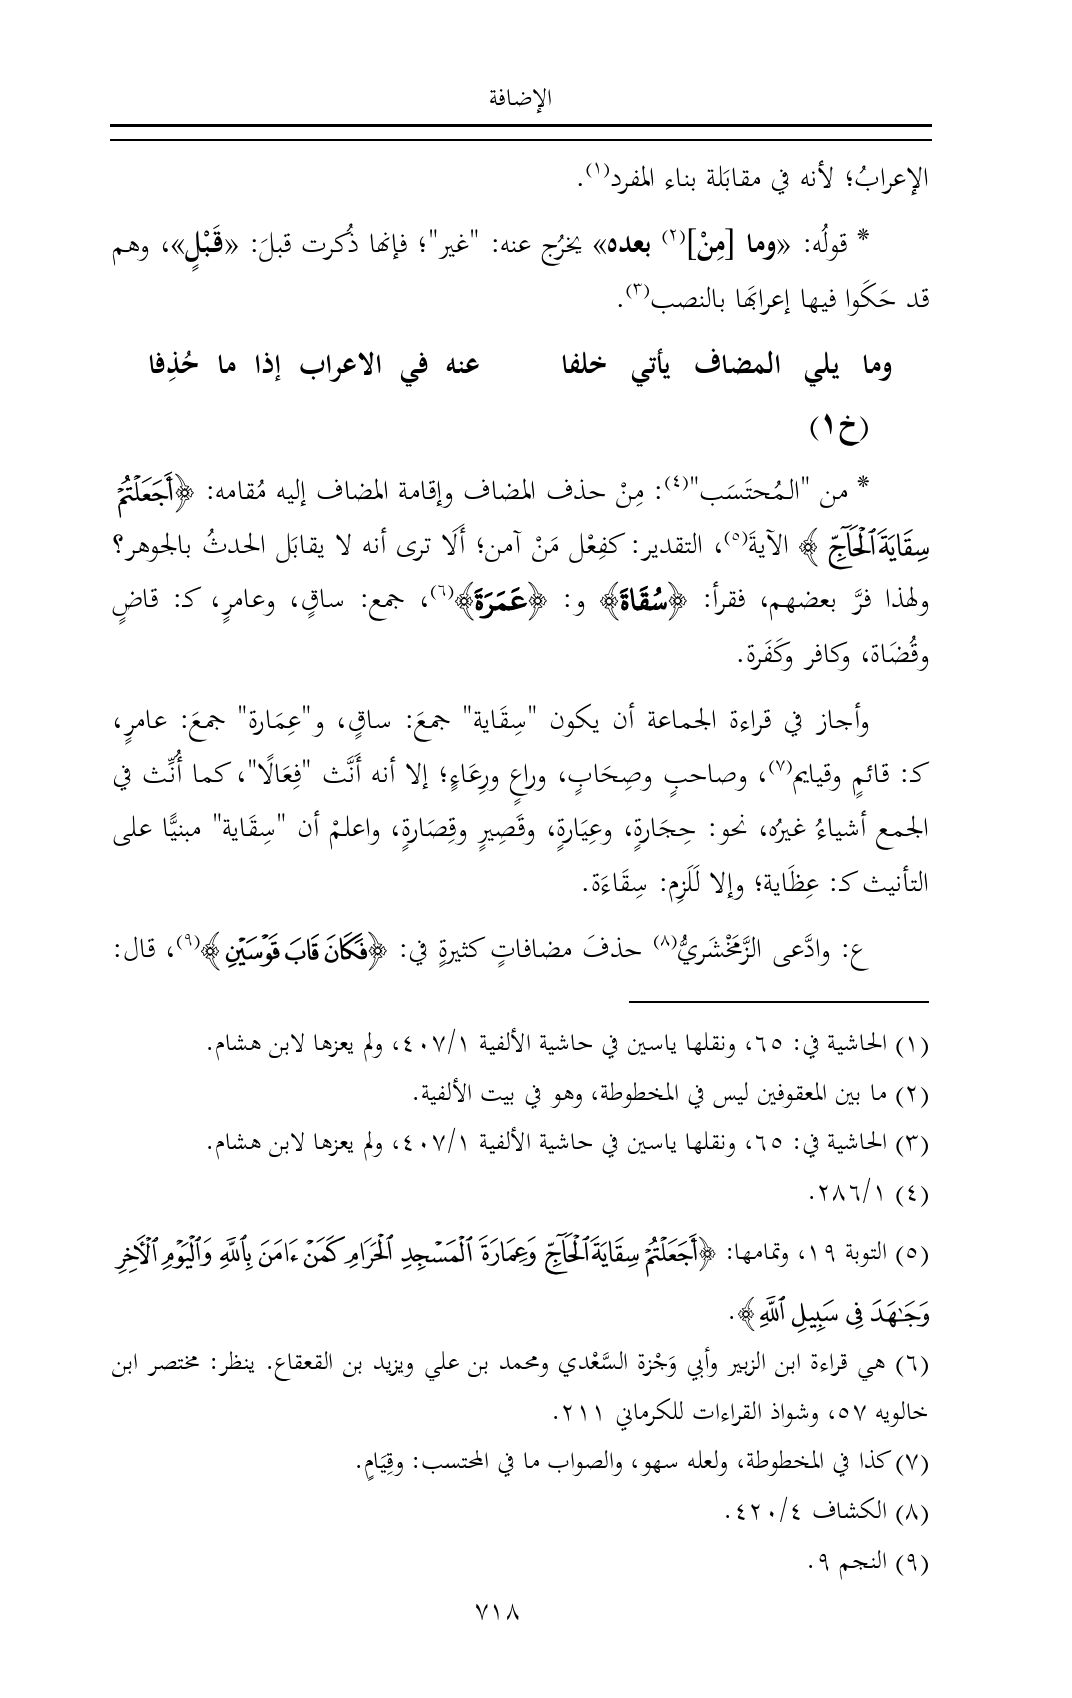 الإضافة
الإعرابُ؛ لأنه في مقابَلة بناء المفرد(١).
* قولُه: «وما [مِنْ](٢) بعده» يخرُج عنه: "غير"؛ فإنها ذُكرت قبلَ: «قَبْلٍ»، وهم
قد حَكَوا فيها إعرابَها بالنصب(٣).
وما يلي المضاف يأتي خلفا عنه في الاعراب إذا ما حُذِفا
(خ١)
* من "المُحتَسَب"(٤): مِنْ حذف المضاف وإقامة المضاف إليه مُقامه: ﴿أَجَعَلۡتُمۡ
سِقَايَةَ ٱلۡحَآجِّ﴾ الآيةَ(٥)، التقدير: كفِعْل مَنْ آمن؛ أَلَا ترى أنه لا يقابَل الحدثُ بالجوهر؟
ولهذا فرَّ بعضهم، فقرأ: ﴿سُقَاةَ﴾ و: ﴿عَمَرَةَ﴾(٦)، جمع: ساقٍ، وعامرٍ، كـ: قاضٍ
وقُضَاة، وكافر وكَفَرة.
وأجاز في قراءة الجماعة أن يكون "سِقَاية" جمعَ: ساقٍ، و"عِمَارة" جمعَ: عامرٍ،
كـ: قائمٍ وقيايم(٧)، وصاحبٍ وصِحَابٍ، وراعٍ ورِعَاءٍ؛ إلا أنه أَنَّث "فِعَالًا"، كما أُنِّث في
الجمع أشياءُ غيرُه، نحو: حِجَارةٍ، وعِيَارةٍ، وقَصِيرٍ وقِصَارةٍ، واعلمْ أن "سِقَاية" مبنيًّا على
التأنيث كـ: عِظَاية؛ وإلا لَلَزِم: سِقَاءَة.
ع: وادَّعى الزَّمَخْشَريُّ(٨) حذفَ مضافاتٍ كثيرةٍ في: ﴿فَكَانَ قَابَ قَوۡسَيۡنِ﴾(٩)، قال:
(١) الحاشية في: ٦٥، ونقلها ياسين في حاشية الألفية ٤٠٧/١، ولم يعزها لابن هشام.
(٢) ما بين المعقوفين ليس في المخطوطة، وهو في بيت الألفية.
(٣) الحاشية في: ٦٥، ونقلها ياسين في حاشية الألفية ٤٠٧/١، ولم يعزها لابن هشام.
(٤) ٢٨٦/١.
(٥) التوبة ١٩، وتمامها: ﴿أَجَعَلۡتُمۡ سِقَايَةَ ٱلۡحَآجِّ وَعِمَارَةَ ٱلۡمَسۡجِدِ ٱلۡحَرَامِ كَمَنۡ ءَامَنَ بِٱللَّهِ وَٱلۡيَوۡمِ ٱلۡأٓخِرِ
وَجَٰهَدَ فِى سَبِيلِ ٱللَّهِ﴾.
(٦) هي قراءة ابن الزبير وأبي وَجْزة السَّعْدي ومحمد بن علي ويزيد بن القعقاع. ينظر: مختصر ابن
خالويه ٥٧، وشواذ القراءات للكرماني ٢١١.
(٧) كذا في المخطوطة، ولعله سهو، والصواب ما في المحتسب: وقِيَامٍ.
(٨) الكشاف ٤٢٠/٤.
(٩) النجم ٩.
٧١٨